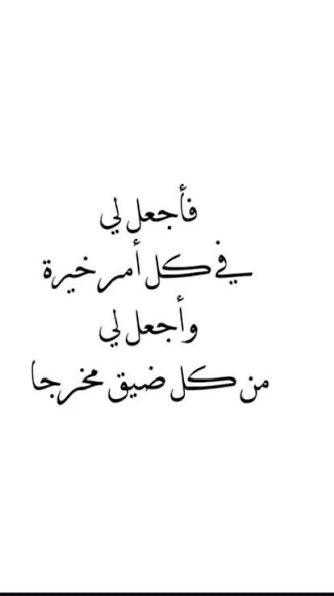 فأجعل لي
في كل أمر خيرة
وأجعل لي
من كل ضيق مخرجا